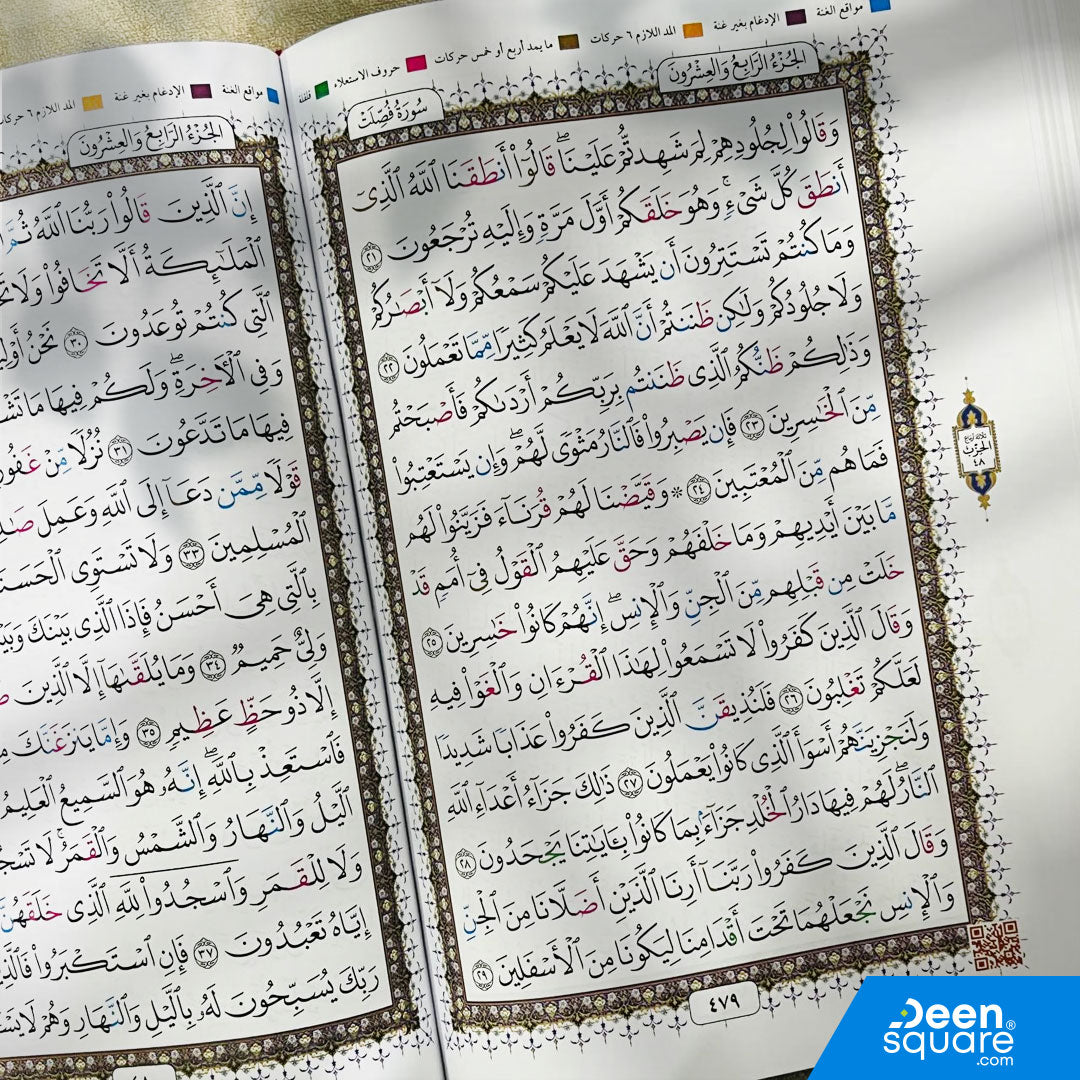 مواقع الغنة الإدغام بغير غنة المد اللازم ٦ حركات ما يمد أربع أو خمس حركات حروف الاستعلاء قلقلة
الجُزْءُ الرَّابِعُ وَالعِشْرُونَ
سُورَةُ فُصِّلَتْ
وَقَالُوا۟ لِجُلُودِهِمْ لِمَ شَهِدتُّمْ عَلَيْنَا ۖ قَالُوٓا۟ أَنطَقَنَا ٱللَّهُ ٱلَّذِىٓ
أَنطَقَ كُلَّ شَىْءٍ ۚ وَهُوَ خَلَقَكُمْ أَوَّلَ مَرَّةٍ وَإِلَيْهِ تُرْجَعُونَ ٢١
وَمَا كُنتُمْ تَسْتَتِرُونَ أَن يَشْهَدَ عَلَيْكُمْ سَمْعُكُمْ وَلَآ أَبْصَٰرُكُمْ
وَلَا جُلُودُكُمْ وَلَٰكِن ظَنَنتُمْ أَنَّ ٱللَّهَ لَا يَعْلَمُ كَثِيرًا مِّمَّا تَعْمَلُونَ ٢٢
وَذَٰلِكُمْ ظَنُّكُمُ ٱلَّذِى ظَنَنتُم بِرَبِّكُمْ أَرْدَىٰكُمْ فَأَصْبَحْتُم
مِّنَ ٱلْخَٰسِرِينَ ٢٣ فَإِن يَصْبِرُوا۟ فَٱلنَّارُ مَثْوًى لَّهُمْ ۖ وَإِن يَسْتَعْتِبُوا۟
فَمَا هُم مِّنَ ٱلْمُعْتَبِينَ ٢٤ ۞ وَقَيَّضْنَا لَهُمْ قُرَنَآءَ فَزَيَّنُوا۟ لَهُم
مَّا بَيْنَ أَيْدِيهِمْ وَمَا خَلْفَهُمْ وَحَقَّ عَلَيْهِمُ ٱلْقَوْلُ فِىٓ أُمَمٍ قَدْ
خَلَتْ مِن قَبْلِهِم مِّنَ ٱلْجِنِّ وَٱلْإِنسِ ۖ إِنَّهُمْ كَانُوا۟ خَٰسِرِينَ ٢٥
وَقَالَ ٱلَّذِينَ كَفَرُوا۟ لَا تَسْمَعُوا۟ لِهَٰذَا ٱلْقُرْءَانِ وَٱلْغَوْا۟ فِيهِ
لَعَلَّكُمْ تَغْلِبُونَ ٢٦ فَلَنُذِيقَنَّ ٱلَّذِينَ كَفَرُوا۟ عَذَابًا شَدِيدًا
وَلَنَجْزِيَنَّهُمْ أَسْوَأَ ٱلَّذِى كَانُوا۟ يَعْمَلُونَ ٢٧ ذَٰلِكَ جَزَآءُ أَعْدَآءِ ٱللَّهِ
ٱلنَّارُ ۖ لَهُمْ فِيهَا دَارُ ٱلْخُلْدِ ۖ جَزَآءًۢ بِمَا كَانُوا۟ بِـَٔايَٰتِنَا يَجْحَدُونَ ٢٨
وَقَالَ ٱلَّذِينَ كَفَرُوا۟ رَبَّنَآ أَرِنَا ٱلَّذَيْنِ أَضَلَّانَا مِنَ ٱلْجِنِّ
وَٱلْإِنسِ نَجْعَلْهُمَا تَحْتَ أَقْدَامِنَا لِيَكُونَا مِنَ ٱلْأَسْفَلِينَ ٢٩
٤٧٩
ثلاثة أرباع
الحزب
٤٨
مواقع الغنة الإدغام بغير غنة المد اللازم ٦ حركات
الجُزْءُ الرَّابِعُ وَالعِشْرُونَ
إِنَّ ٱلَّذِينَ قَالُوا۟ رَبُّنَا ٱللَّهُ
ٱلْمَلَٰٓئِكَةُ أَلَّا تَخَافُوا۟
ٱلَّتِى كُنتُمْ تُوعَدُونَ ٣٠ نَحْنُ
وَفِى ٱلْـَٔاخِرَةِ ۖ وَلَكُمْ فِيهَا مَا
فِيهَا مَا تَدَّعُونَ ٣١ نُزُلًا مِّنْ
قَوْلًا مِّمَّن دَعَآ إِلَى ٱللَّهِ وَعَمِلَ
ٱلْمُسْلِمِينَ ٣٣ وَلَا تَسْتَوِى
بِٱلَّتِى هِىَ أَحْسَنُ فَإِذَا ٱلَّذِى بَيْنَكَ
وَلِىٌّ حَمِيمٌ ٣٤ وَمَا يُلَقَّىٰهَآ إِلَّا ٱلَّذِينَ
إِلَّا ذُو حَظٍّ عَظِيمٍ ٣٥ وَإِمَّا يَنزَغَنَّكَ
فَٱسْتَعِذْ بِٱللَّهِ ۖ إِنَّهُۥ هُوَ ٱلسَّمِيعُ ٱلْعَلِيمُ
ٱلَّيْلُ وَٱلنَّهَارُ وَٱلشَّمْسُ وَٱلْقَمَرُ ۚ لَا
وَلَا لِلْقَمَرِ وَٱسْجُدُوا۟ لِلَّهِ ٱلَّذِى خَلَقَهُنَّ
إِيَّاهُ تَعْبُدُونَ ٣٧ فَإِنِ ٱسْتَكْبَرُوا۟
رَبِّكَ يُسَبِّحُونَ لَهُۥ بِٱلَّيْلِ وَٱلنَّهَارِ وَهُمْ لَا
Deen
square®
.com